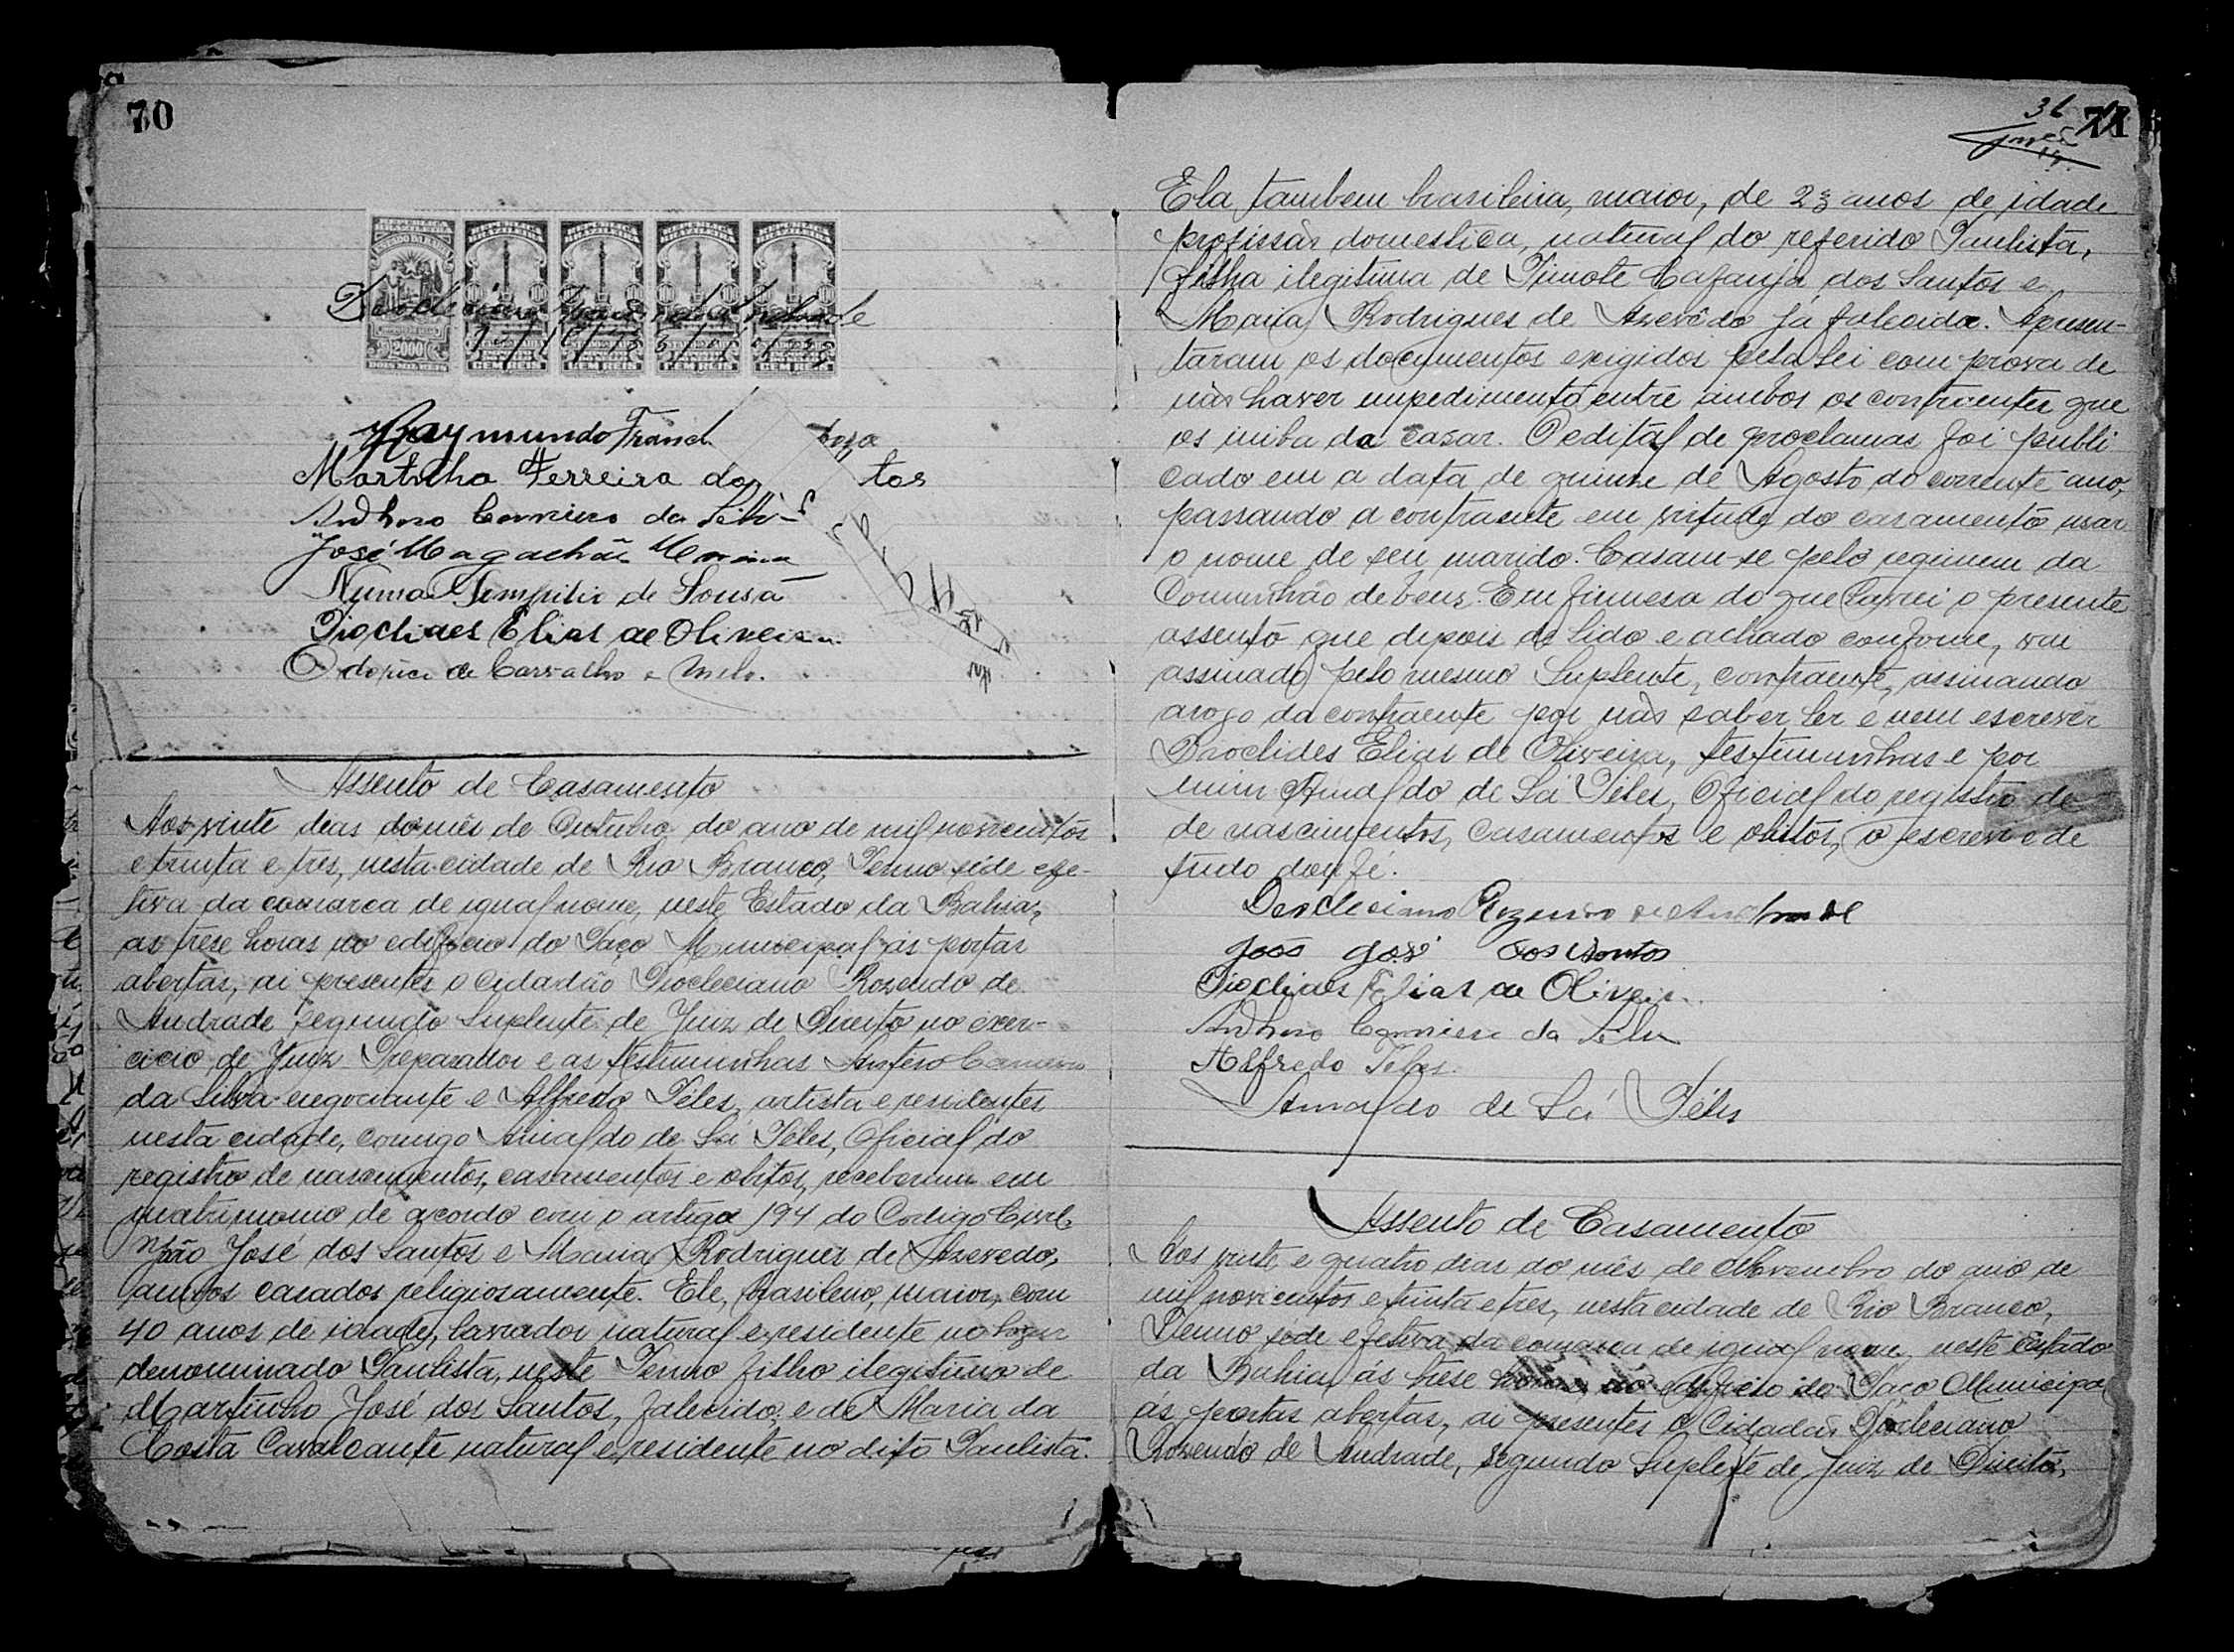 70
Deocleciano Rozendo de Andrade
2000
DOIS MIL REIS
CEM REIS
CEM REIS
CEM REIS
CEM REIS
Raymundo Franc
Martinho Ferreira do tos
Anthero Carneiro da Silva
José Magalhães
Numa Pompilio de Sousa
Dioclides Elias de Oliveira
de Carvalho e Melo.
Assento de Casamento
Aos vinte dias do mês de Outubro do ano de mil novecentos
e trinta e três, nesta cidade de Rio Branco, Termo séde efe-
tiva da comarca de igual nome, neste Estado da Bahia,
as trese horas no edificio do Paço Municipal ás portas
abertas, ai presentes o cidadão Deocleciano Rozendo de
Andrade segundo Suplente de Juiz de Direito no exer-
cicio de Juiz Preparador e as testimunhas Antero Carneiro
da Silva negociante e Alfredo Téles, artista e residentes
nesta cidade, comigo Arnaldo de Sá Téles, Oficial do
registro de nascimentos, casamentos e obitos, receberam em
matrimonio de acordo com o artigo 194 do Codigo Civil,
João José dos Santos e Maria Rodrigues de Azevedo,
ambos casados religiosamente. Ele, brasileiro, maior, com
40 anos de idade, lavrador natural e residente no logar
denominado Paulista, neste Termo filho ilegitimo de
Martinho José dos Santos, falecido, e de Maria da
Costa Cavalcante natural e residente no dito Paulista.
36
71
Ela tambem brasileira, maior, de 23 anos de idade
profissão domestica, natural do referido Paulista,
filha ilegitima de Timote Cafanja dos Santos e
Maria Rodrigues de Azevêdo já falecida. Apresen-
taram os documentos exigidos pela lei com prova de
não haver impedimento entre ambos os contraentes que
os iniba da casar. O edital de proclamas foi publi
cado em a data de quinze de Agosto do corrente ano,
passando a contraente em virtude do casamento usar
o nome de seu marido. Casam-se pelo regimem da
Comunhão de bens. Em firmesa do que lavrei o presente
assento que depois de lido e achado conforme, vai
assinado pelo mesmo Suplente, contraente, assinando
arogo da contraente por não saber ler e nem escrever
Dioclides Elias de Oliveira, testimunhas e por
mim Arnaldo de Sá Téles, Oficial do registro de
de nascimentos, casamentos e obitos, o escrevi e de
tudo dou fé.
Deocleciano Rozendo de Andrade
João José dos Santos
Dioclides Elias de Oliveira
Anthero Carneiro da Silva
Alfredo Teles.
Arnaldo de Sá Téles
Assento de Casamento
Aos vinte e quatro dias do mês de Novembro do ano de
mil novicentos e trinta e tres, nesta cidade de Rio Branco,
Termo séde efetiva da comarca de igual nome, neste Estado
da Bahia, ás trese horas no edificio do Paco Municipal
ás portas abertas, ai presentes o Cidadão Diocleciano
Rozendo de Andrade, segundo Suplete de Juiz de Direito,